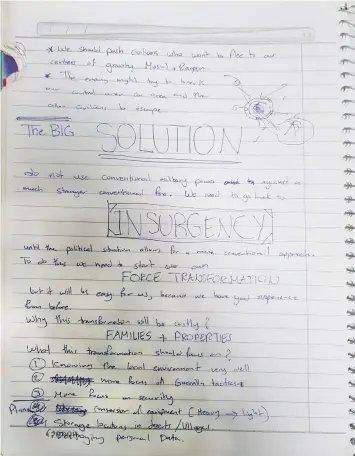 * We should push civilians who want to flee to our
centres of gravity Mosul + Raqqa
* The enemy might try to
our control area and
other civilians to escape
The BIG SOLUTION
do not use conventional military power against a
much stronger conventional foe. We need to go back to
INSURGENCY
until the political situation allows for a more conventional approach
To do this we need to start our own
FORCE TRANSFORMATION
but it will be easy for us, because we have good experience
from before.
Why this transformation will be costly?
FAMILIES + PROPERTIES
What this transformation should focus on?
① Knowing the local environment very well
② more focus of Guerilla tactics
③ More focus on security
conversion of equipment (Heavy → light)
Storage locations in deserts / Villages
personal Data.